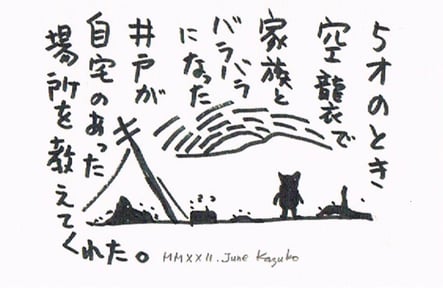 5才のとき
空襲で
家族と
バラバラ
になった
井戸が
自宅のあった
場所を教えてくれた。
MMXXII. June Kazuko